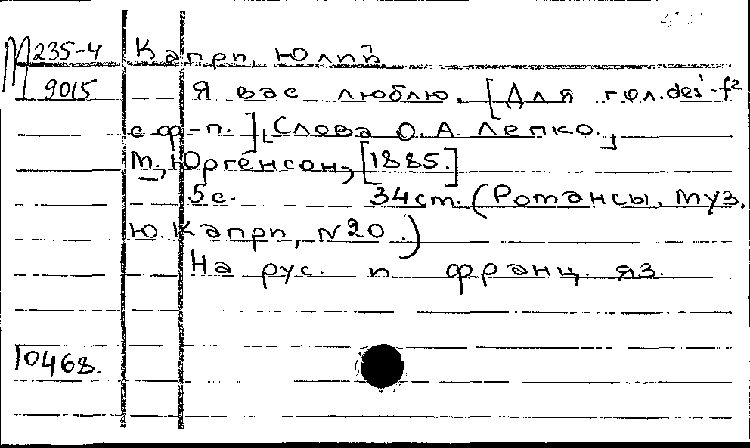 М 235-4 Капри, Юлий
9015 Я вас люблю. [Для гол. des'-f²
с ф-п.] [Слова О. А. Лепко.]
М., Юргенсон, [1885.]
5 с. 34 cm. (Романсы. Муз.
Ю. Капри, N 20.)
На рус. и франц. яз.
10468.